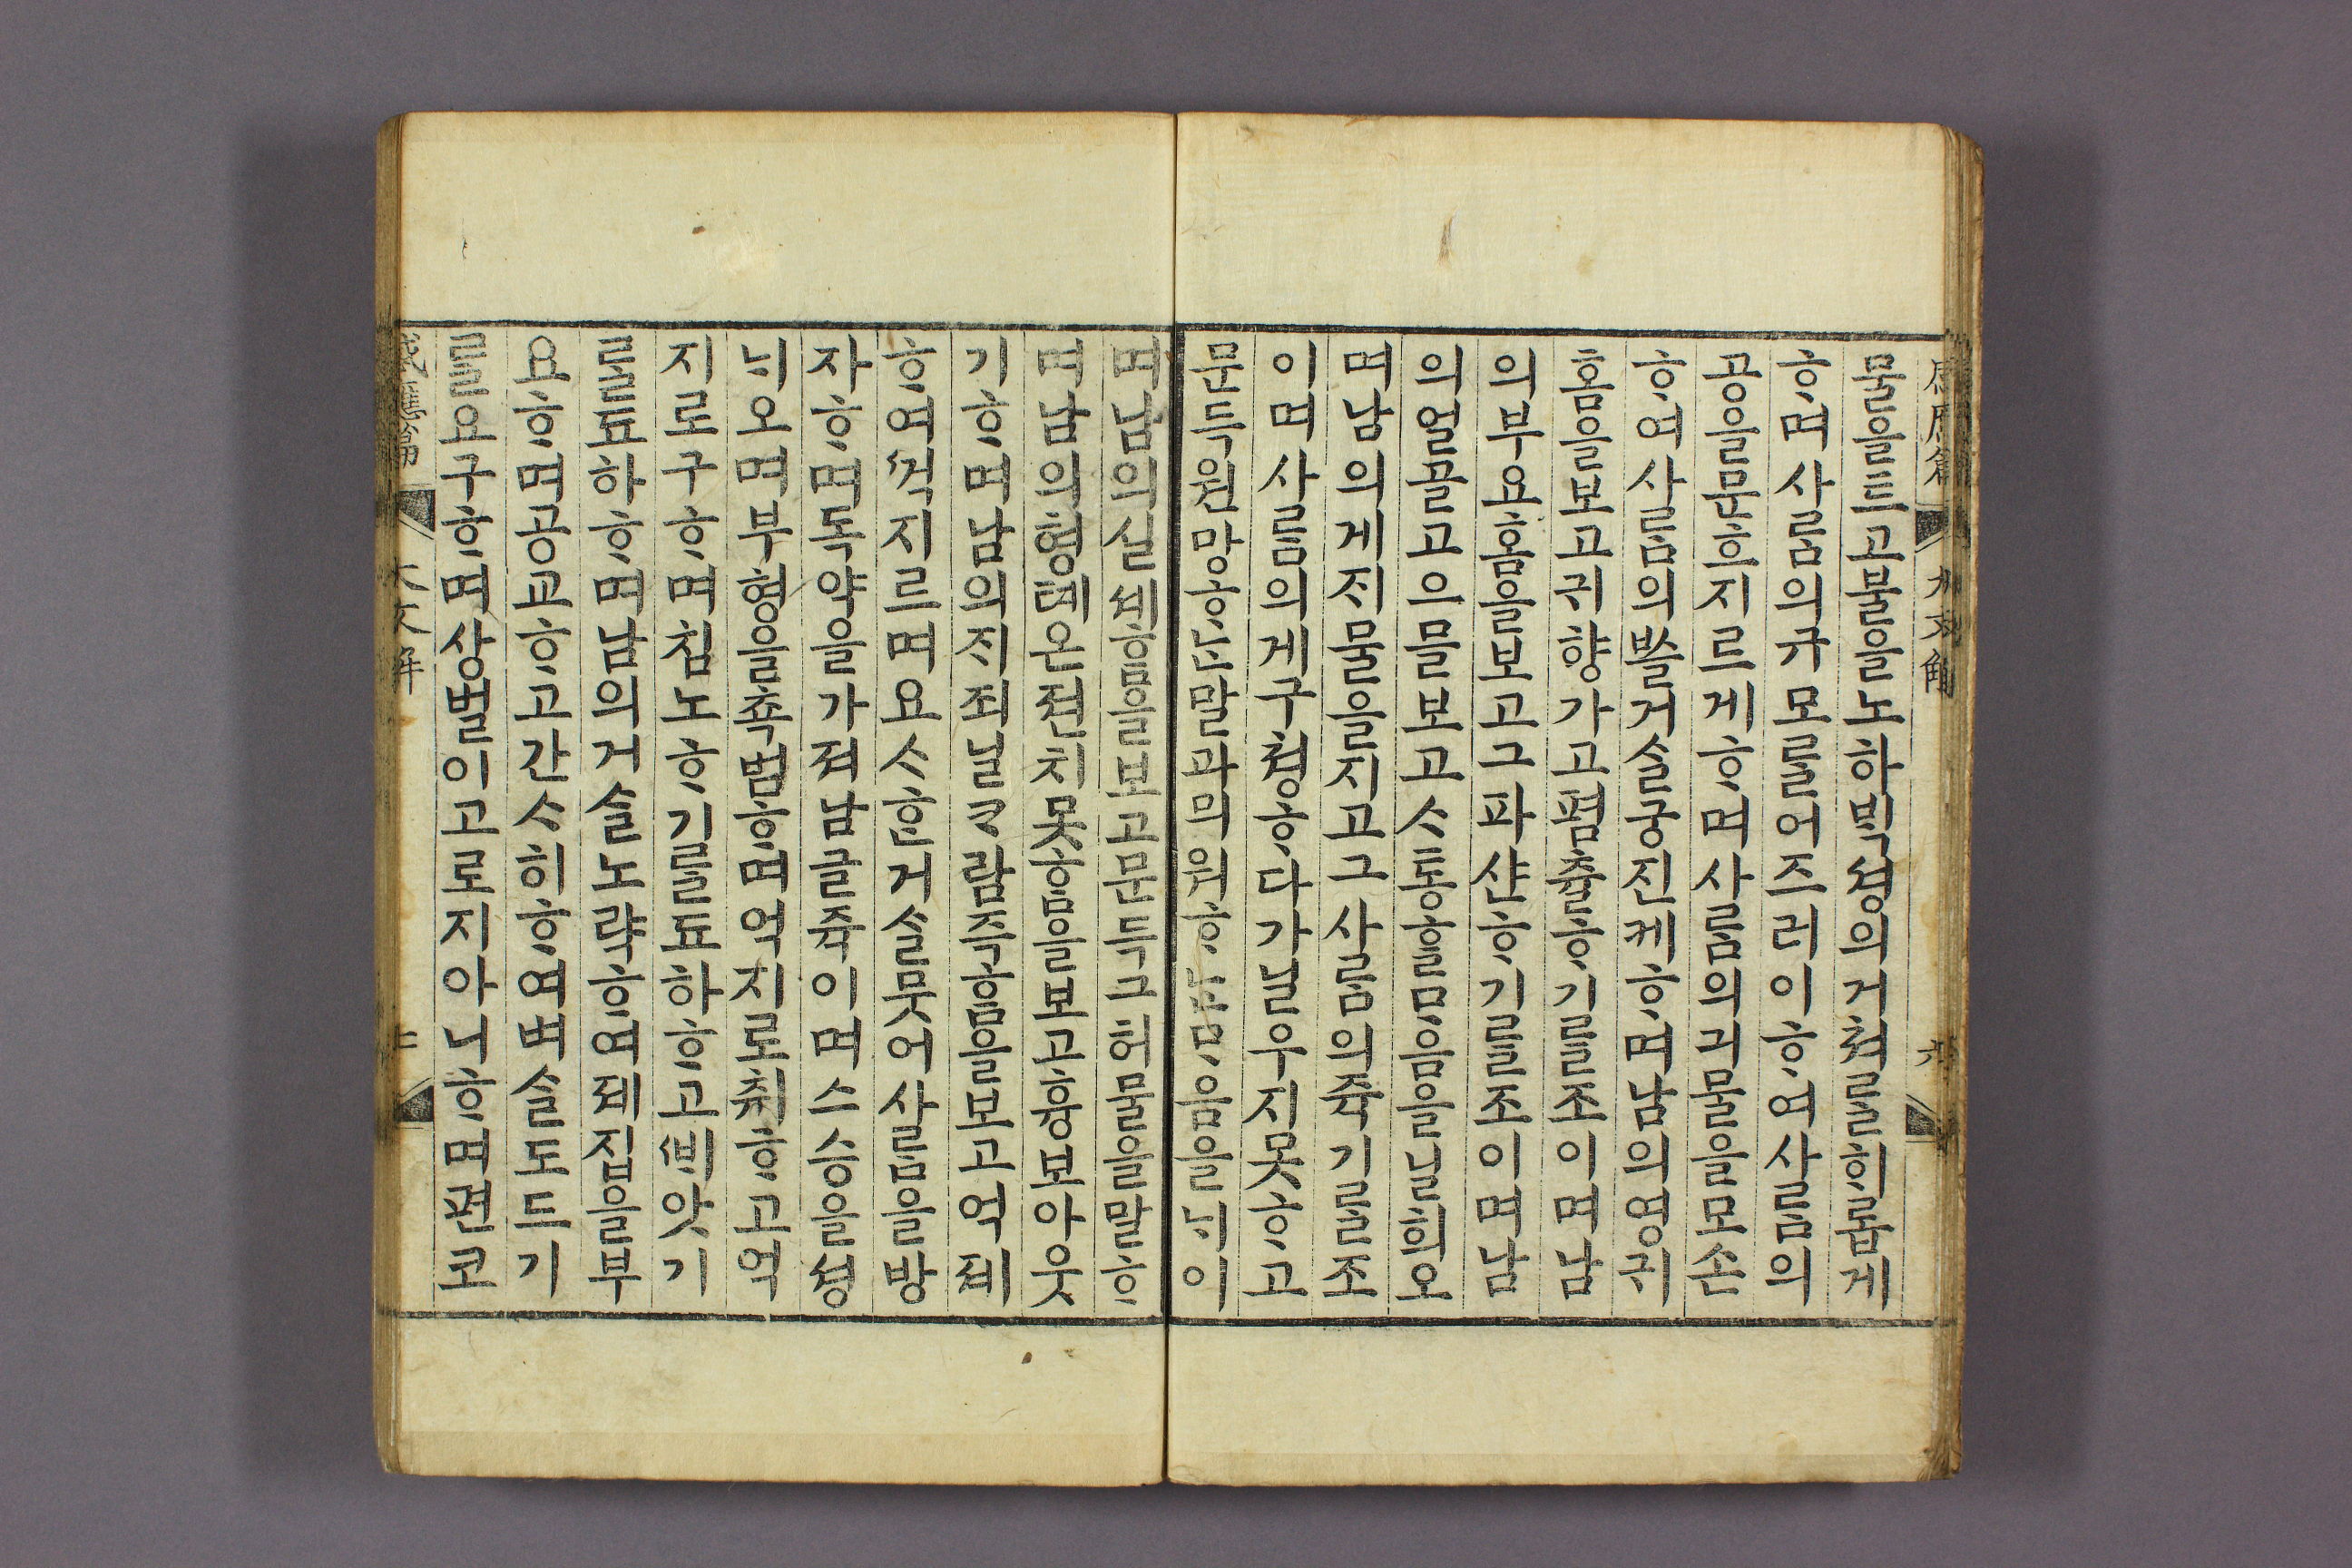 感應篇 大文解 六
믈을드리고믈을노하ᄇᆡᆨ셩의거쳐ᄅᆞᆯ해롭게
ᄒᆞ며사ᄅᆞᆷ의규모ᄅᆞᆯ어즈러이ᄒᆞ여사ᄅᆞᆷ의
공을 지르게ᄒᆞ며사ᄅᆞᆷ의긔믈을모손
ᄒᆞ여사ᄅᆞᆷ의ᄡᅳᆯ거슬궁진케ᄒᆞ며남의영귀
홈을보고귀향가고폄츌ᄒᆞ기ᄅᆞᆯ죠이며남
의부여홈을보고그파산ᄒᆞ기ᄅᆞᆯ죠이며남
의얼믈고으믈보고ᄉᆞᄉᆞ통ᄒᆞᆯᄆᆞ음을ᄀᆞᆯ희오
며남의게ᄌᆡ믈을지고그사ᄅᆞᆷ의죽기ᄅᆞᆯ죠
이며사ᄅᆞᆷ의게구쳥ᄒᆞ다가ᄀᆞᆯ우지못ᄒᆞ고
문득원망ᄒᆞᄂᆞᆫ말과믜워ᄒᆞᄂᆞᆫᄆᆞ음을ᄂᆡ이
며남의실쳬홈을보고문득그허믈을말ᄒᆞ
며남의형톄온젼치못홈을보고 보아웃
기ᄒᆞ며남의ᄌᆡ죄 람즉홈을보고억졔
ᄒᆞ여ᄭᅥᆨ지르며요ᄉᆞᄒᆞᆫ거슬뭇어사ᄅᆞᆷ을방
자ᄒᆞ며독약을가져남글죽이며스승을셩
ᄂᆡ오며부형을쵹범ᄒᆞ며억지로ᄎᆔᄒᆞ고억
지로구ᄒᆞ며침노ᄒᆞ기ᄅᆞᆯ됴하ᄒᆞ고ᄲᅢ앗기
ᄅᆞᆯ됴하ᄒᆞ며남의거슬노략ᄒᆞ여졔집을부
요ᄒᆞ며공교ᄒᆞ고간ᄉᆞ히ᄒᆞ여벼슬도드기
ᄅᆞᆯ요구ᄒᆞ며샹벌이고로지아니ᄒᆞ며편코
感應篇 大文解